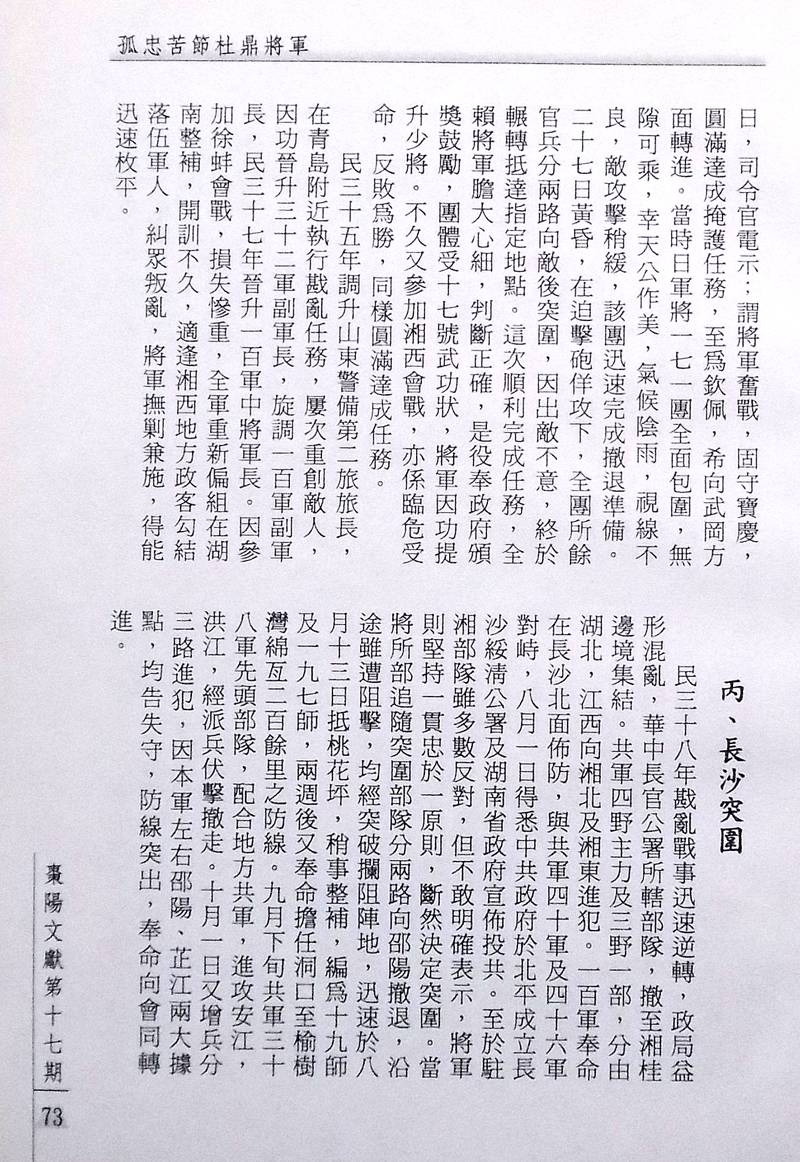 孤忠苦節杜鼎將軍
日，司令官電示：謂將軍奮戰，固守寶慶，
圓滿達成掩護任務，至爲欽佩，希向武岡方
面轉進。當時日軍將一七一團全面包圍，無
隙可乘，幸天公作美，氣候陰雨，視線不
良，敵攻擊稍緩，該團迅速完成撤退準備。
二十七日黃昏，在迫擊砲佯攻下，全團所餘
官兵分兩路向敵後突圍，因出敵不意，終於
輾轉抵達指定地點。這次順利完成任務，全
賴將軍膽大心細，判斷正確，是役奉政府頒
獎鼓勵，團體受十七號武功狀，將軍因功提
升少將。不久又參加湘西會戰，亦係臨危受
命，反敗爲勝，同樣圓滿達成任務。
民三十五年調升山東警備第二旅旅長，
在青島附近執行戡亂任務，屢次重創敵人，
因功晉升三十二軍副軍長，旋調一百軍副軍
長，民三十七年晉升一百軍中將軍長。因參
加徐蚌會戰，損失慘重，全軍重新偏組在湖
南整補，開訓不久，適逢湘西地方政客勾結
落伍軍人，糾眾叛亂，將軍撫剿兼施，得能
迅速枚平。
丙、長沙突圍
民三十八年戡亂戰事迅速逆轉，政局益
形混亂，華中長官公署所轄部隊，撤至湘桂
邊境集結。共軍四野主力及三野一部，分由
湖北，江西向湘北及湘東進犯。一百軍奉命
在長沙北面佈防，與共軍四十軍及四十六軍
對峙，八月一日得悉中共政府於北平成立長
沙綏清公署及湖南省政府宣佈投共。至於駐
湘部隊雖多數反對，但不敢明確表示，將軍
則堅持一貫忠於一原則，斷然決定突圍。當
將所部追隨突圍部隊分兩路向邵陽撤退，沿
途雖遭阻擊，均經突破攔阻陣地，迅速於八
月十三日抵桃花坪，稍事整補，編爲十九師
及一九七師，兩週後又奉命擔任洞口至榆樹
灣綿亙二百餘里之防線。九月下旬共軍三十
八軍先頭部隊，配合地方共軍，進攻安江，
洪江，經派兵伏擊撤走。十月一日又增兵分
三路進犯，因本軍左右邵陽、芷江兩大據
點，均告失守，防線突出，奉命向會同轉
進。
棗陽文獻第十七期
73